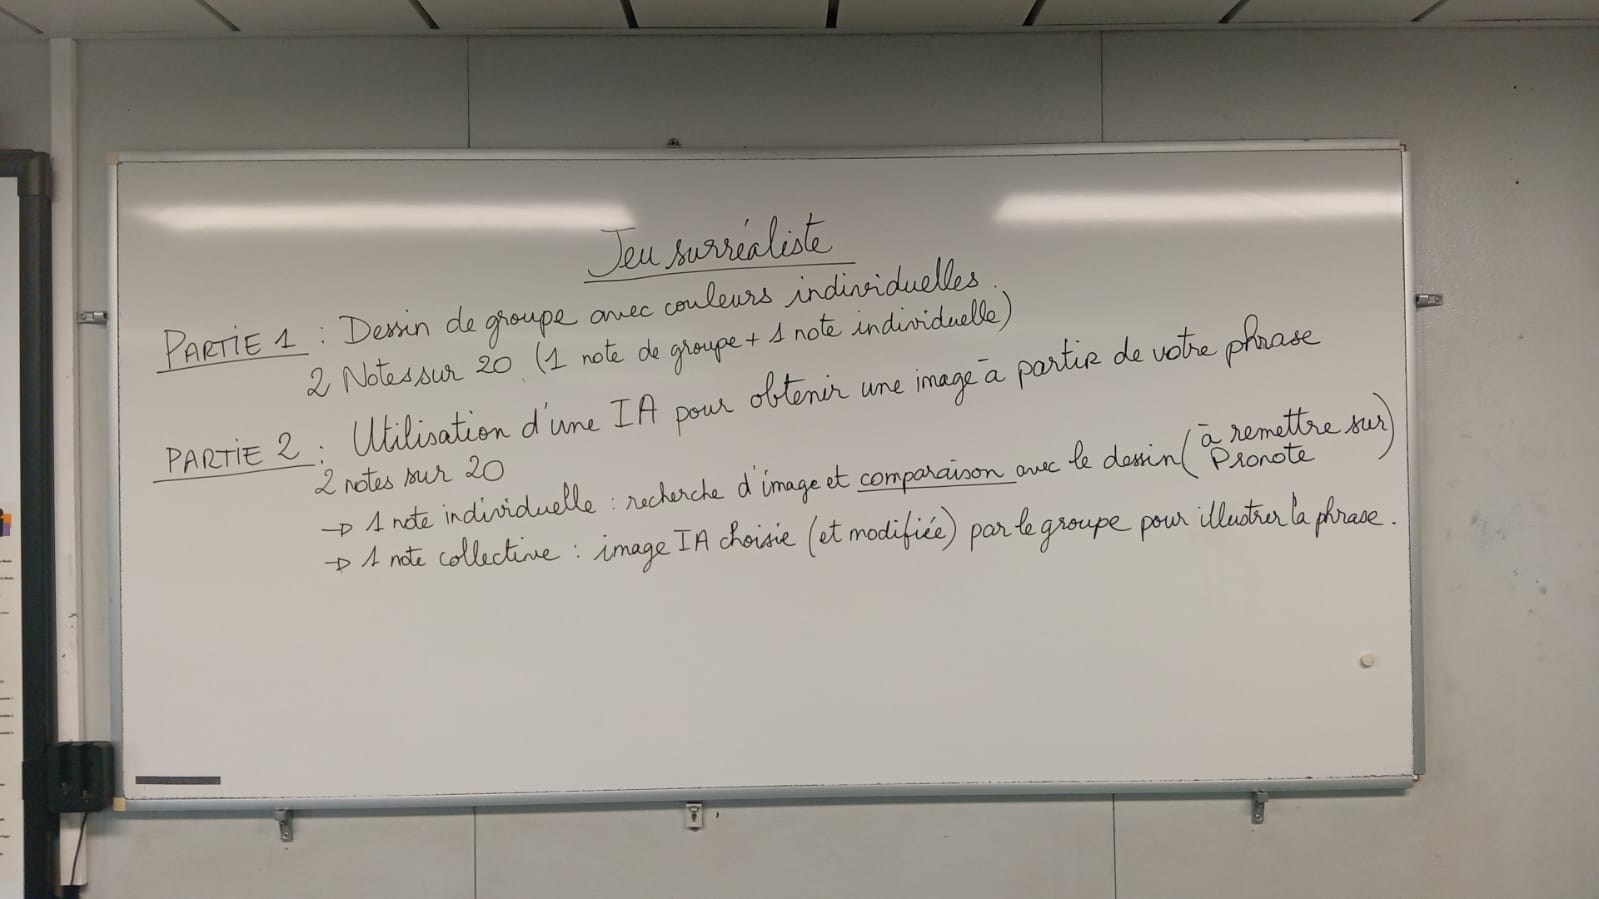 Jeu surréaliste
PARTIE 1 : Dessin de groupe avec couleurs individuelles.
2 Notes sur 20 (1 note de groupe + 1 note individuelle)
PARTIE 2 : Utilisation d'une IA pour obtenir une image à partir de votre phrase
2 notes sur 20
→ 1 note individuelle : recherche d'image et comparaison avec le dessin (à remettre sur Pronote)
→ 1 note collective : image IA choisie (et modifiée) par le groupe pour illustrer la phrase.